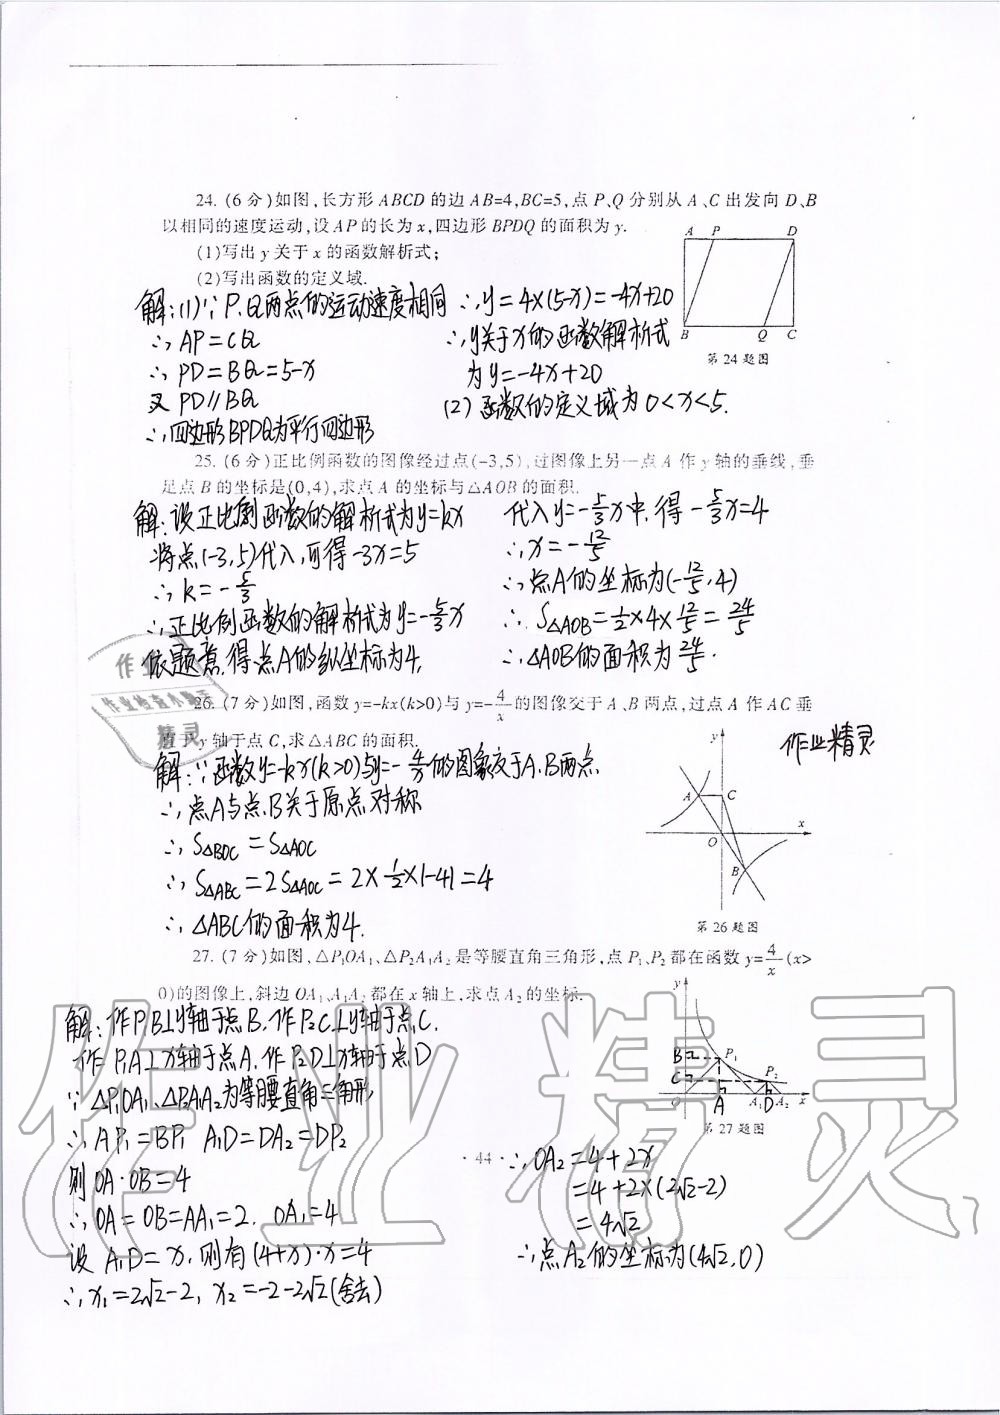 24. (6分)如图,长方形ABCD的边AB=4,BC=5,点P、Q分别从A、C出发向D、B
以相同的速度运动,设AP的长为x,四边形BPDQ的面积为y.
(1)写出y关于x的函数解析式;
(2)写出函数的定义域.
A P D
B Q C
第24题图
解:(1)∵P、Q两点的运动速度相同
∴AP=CQ
∴PD=BQ=5-x
又PD∥BQ
∴四边形BPDQ为平行四边形
∴y=4×(5-x)=-4x+20
∴y关于x的函数解析式
为y=-4x+20
(2)函数的定义域为0<x<5.
25. (6分)正比例函数的图像经过点(-3,5),过图像上另一点A作y轴的垂线,垂
足点B的坐标是(0,4),求点A的坐标与△AOB的面积.
解:设正比例函数的解析式为y=kx
将点(-3,5)代入,可得-3x=5
∴k=-5/3
∴正比例函数的解析式为y=-5/3x
依题意,得点A的纵坐标为4,
代入y=-5/3x中,得-5/3x=4
∴x=-12/5
∴点A的坐标为(-12/5,4)
∴S△AOB=1/2×4×12/5=24/5
∴△AOB的面积为24/5.
26. (7分)如图,函数y=-kx(k>0)与y=-4/x的图像交于A、B两点,过点A作AC垂
直于y轴于点C,求△ABC的面积.
作业精灵
解:∵函数y=-kx(k>0)与y=-4/x的图象交于A、B两点
∴点A与点B关于原点对称
∴S△BOC=S△AOC
∴S△ABC=2S△AOC=2×1/2×|-4|=4
∴△ABC的面积为4.
y
A C
x
O
B
第26题图
27. (7分)如图,△P₁OA₁、△P₂A₁A₂是等腰直角三角形,点P₁、P₂都在函数y=4/x(x>
0)的图像上,斜边OA₁、A₁A₂都在x轴上,求点A₂的坐标.
y
B P₁
C P₂
O A A₁ D A₂ x
第27题图
解:作P₁B⊥y轴于点B,作P₂C⊥y轴于点C,
作P₁A⊥x轴于点A,作P₂D⊥x轴于点D
∵△P₁OA₁、△P₂A₁A₂为等腰直角三角形
∴AP₁=BP₁ A₁D=DA₂=DP₂
则OA·OB=4
∴OA=OB=AA₁=2, OA₁=4
设A₁D=x,则有(4+x)·x=4
∴x₁=2√2-2, x₂=-2-2√2(舍去)
· 44 ·
∴OA₂=4+2x
=4+2×(2√2-2)
=4√2
∴点A₂的坐标为(4√2,0)
作业精灵
作业
作业检查小助手
精灵